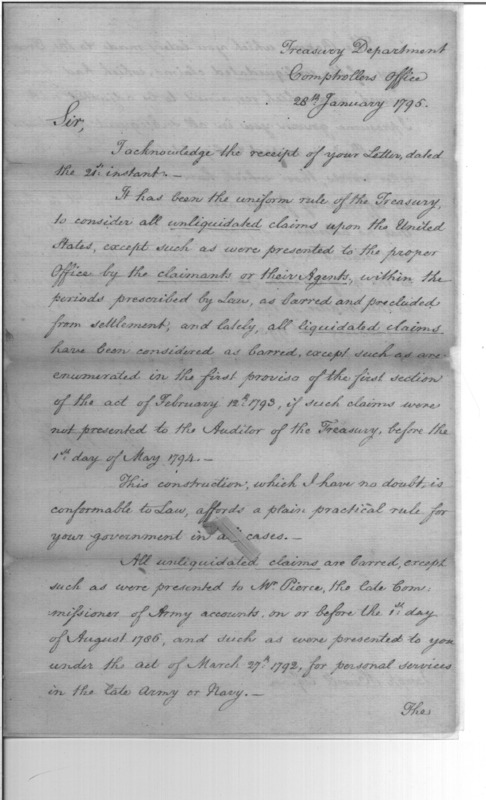 Treasury Department
Comptrollers Office
28th January 1795.
Sir,
I acknowledge the receipt of your Letter, dated
the 21st instant.—
It has been the uniform rule of the Treasury,
to consider all unliquidated claims upon the United
States, except such as were presented to the proper
Office by the claimants or their Agents, within the
periods prescribed by Law, as barred and precluded
from settlement; and lately, all liquidated claims
have been considered as barred, except such as are
enumerated in the first proviso of the first section
of the act of February 12th 1793, if such claims were
not presented to the Auditor of the Treasury, before the
1st day of May 1794.—
This construction, which I have no doubt, is
conformable to Law, affords a plain practical rule for
your government in all cases.—
All unliquidated claims are barred, except
such as were presented to Mr. Pierce, the late Com:
missioner of Army accounts, on or before the 1st day
of August 1786, and such as were presented to you
under the act of March 27th 1792, for personal services
in the late Army or Navy.—
The